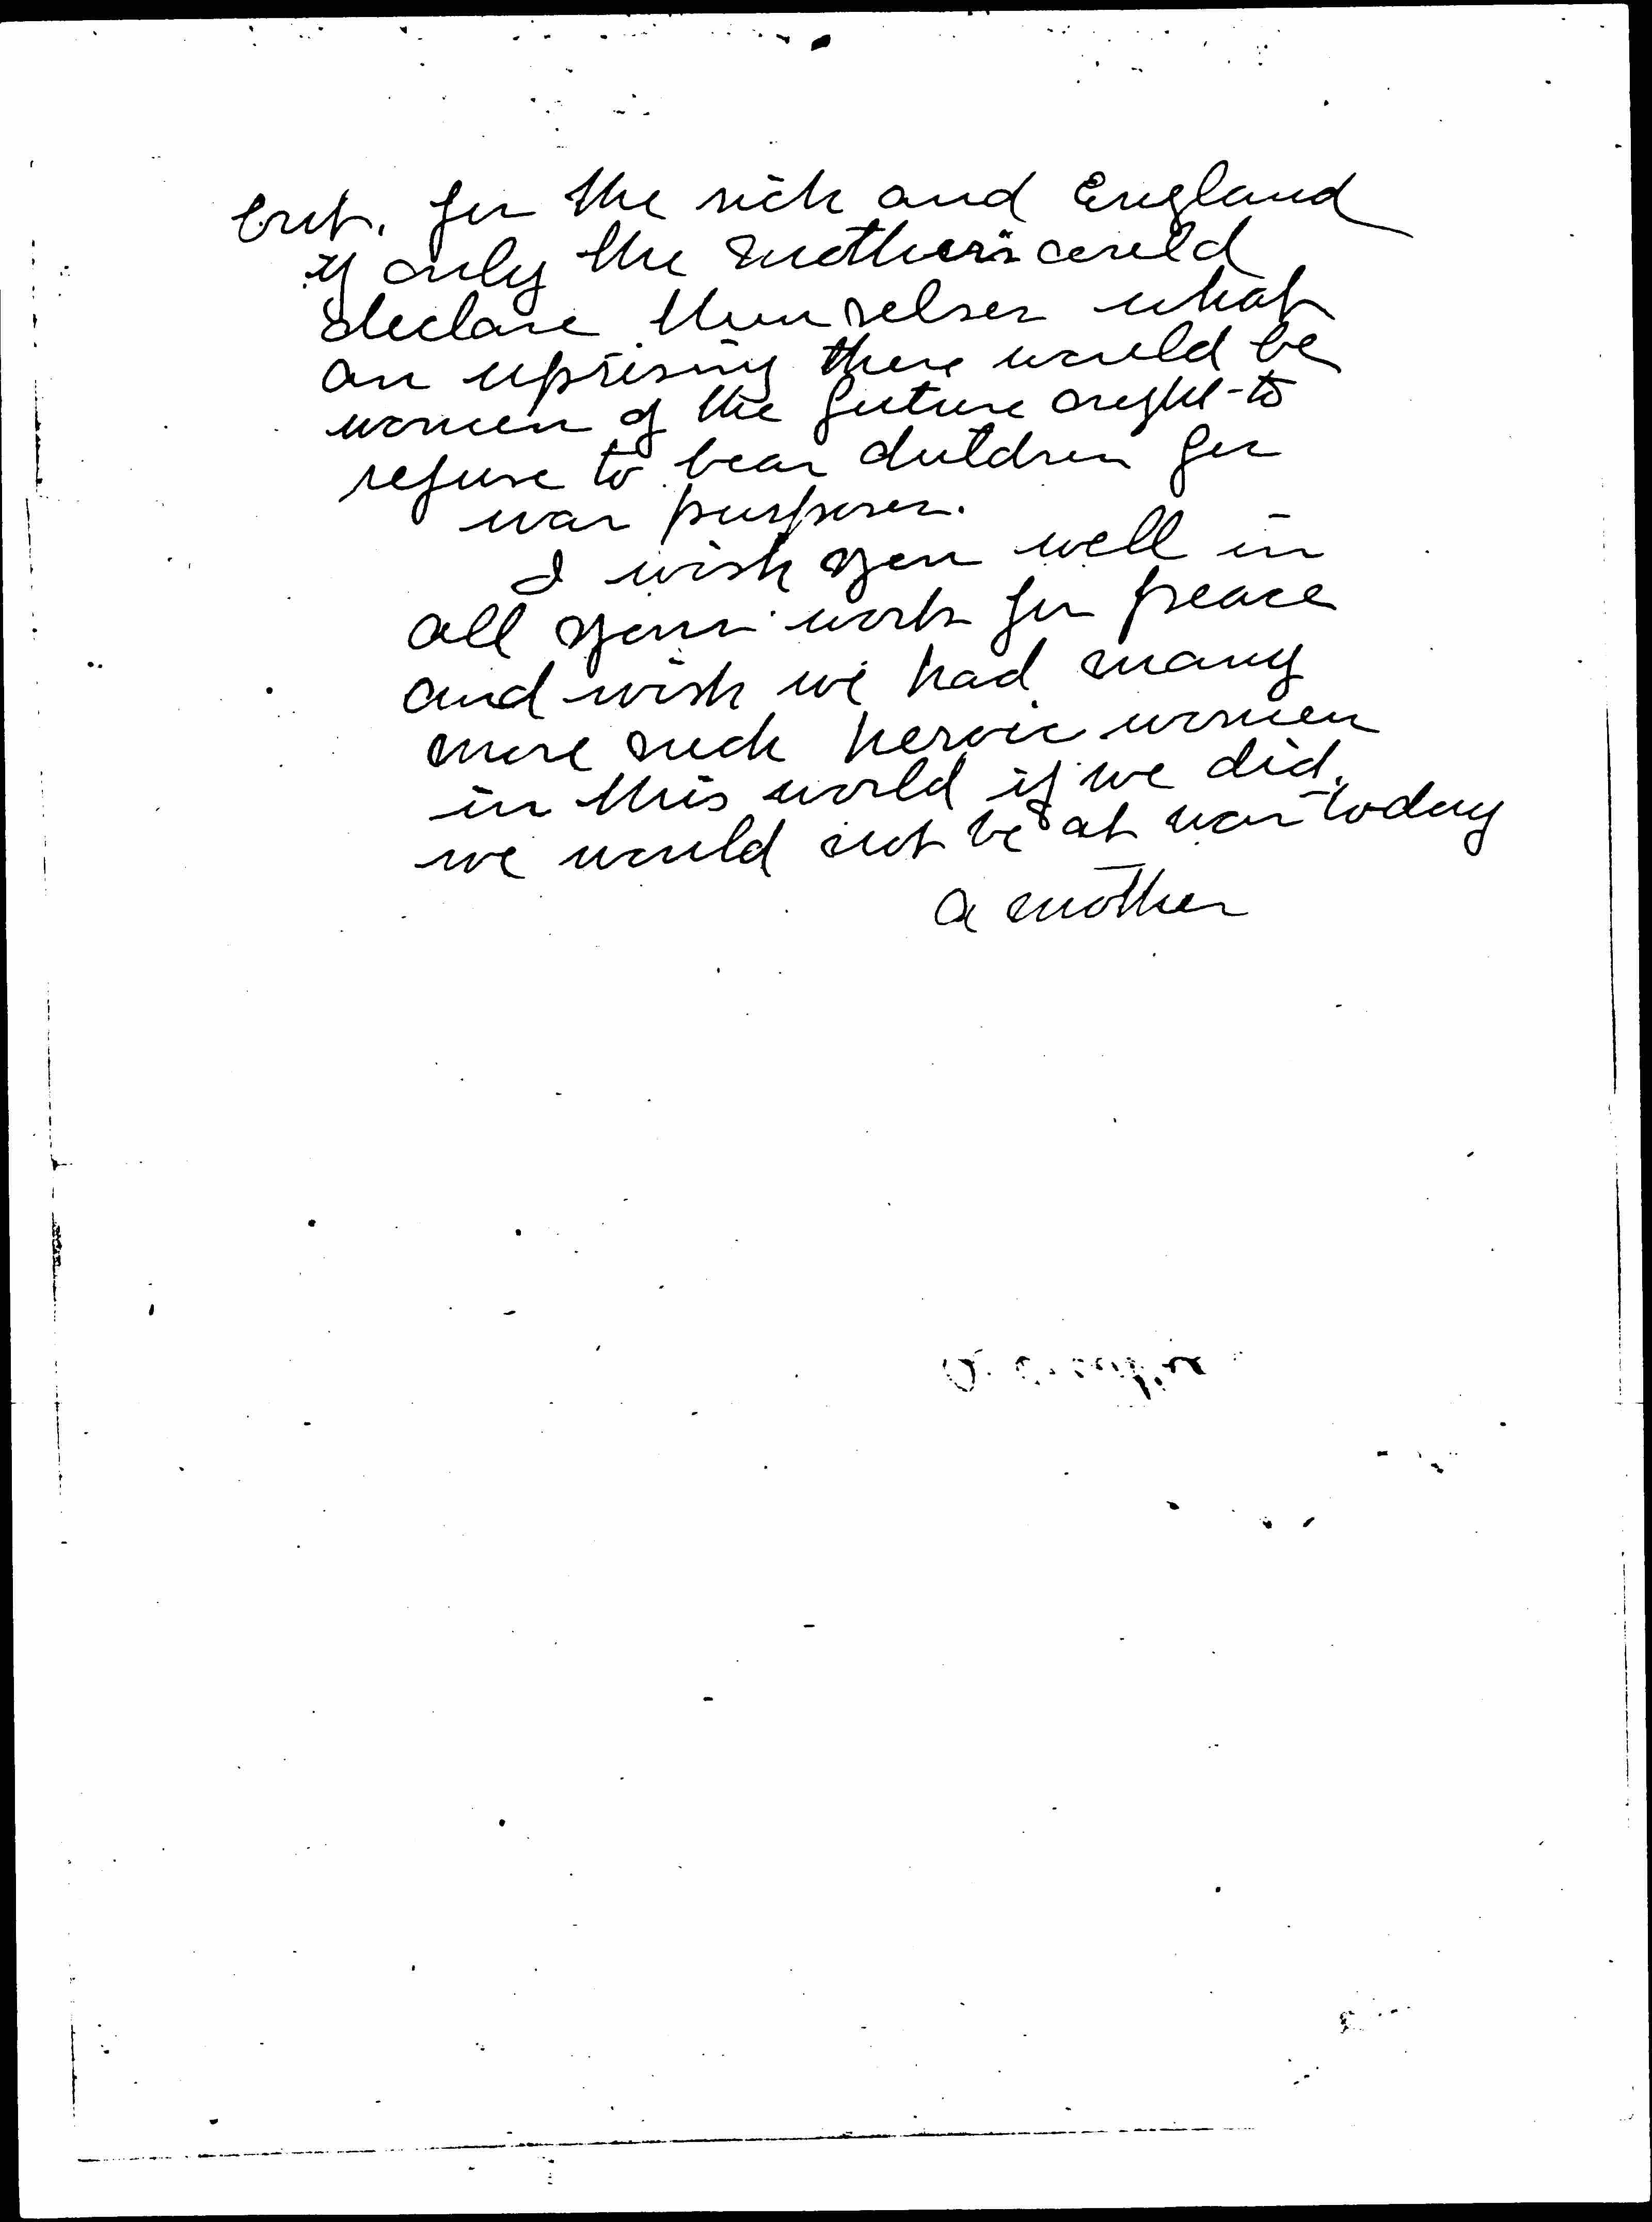 but. for the rich and England
if only the mothers could
declare themselves what
an uprising there would be
women of the future ought to
refuse to bear children for
war purposes.
I wish you well in
all your work for peace
and wish we had many
more such heroic women
in this world if we did.
we would not be at war today
a mother